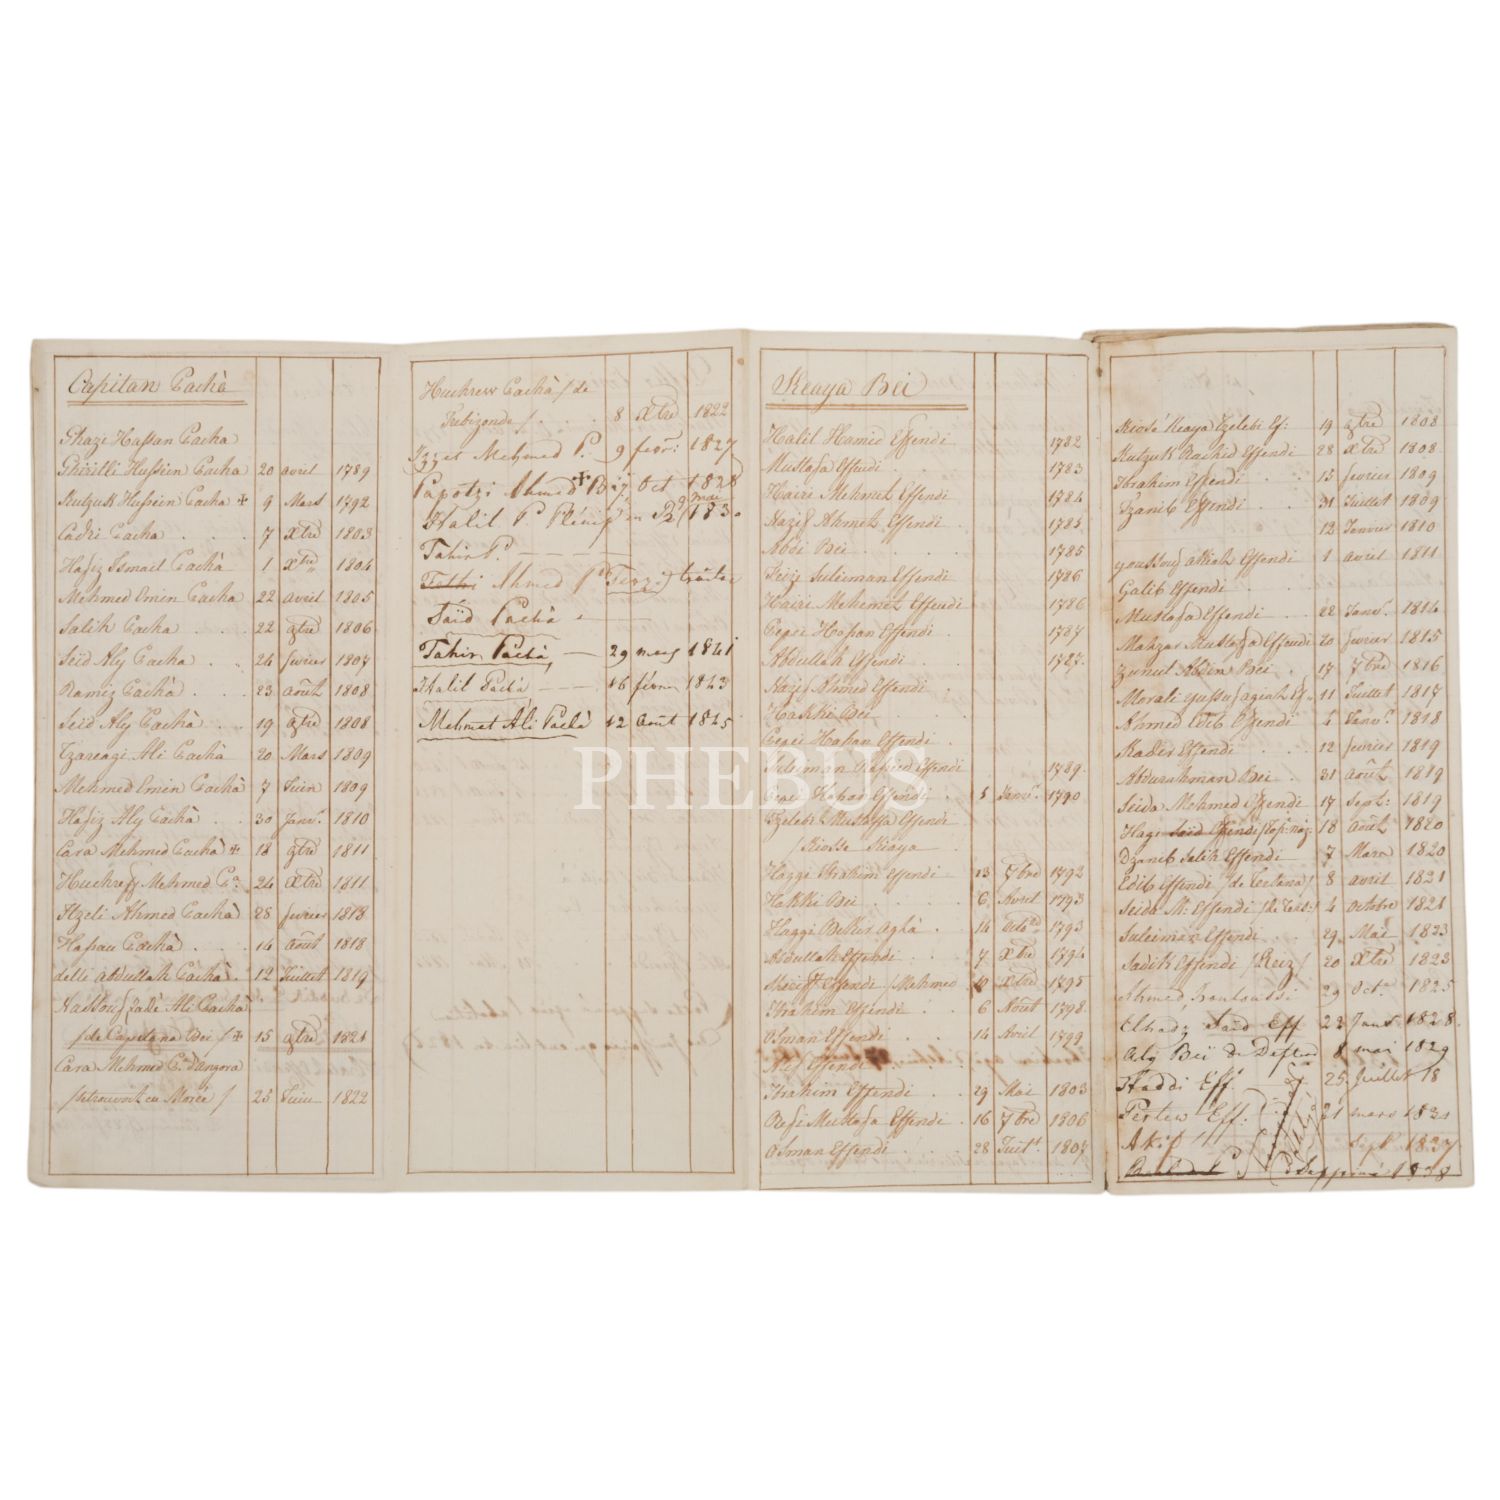 Capitan Pachà
Ghazi Hassan Pacha
Ghiritli Hussien Pacha 20 avril 1789
Kutzuk Hussein Pacha + 9 Mars 1792
Cadri Pacha . . . 7 Xbre 1803
Hafiz Ismail Pachà 1 Xbre 1804
Mehmed Emin Pacha 22 avril 1805
Salih Pacha . . . 22 9bre 1806
Seïd Aly Pacha . . 24 fevrier 1807
Ramiz Pachà . . . 23 août 1808
Seid Aly Pachà . . 19 9bre 1808
Tzarcagi Ali Pachà 20 Mars 1809
Mehmed Emin Pachà 7 Juin 1809
Hafiz Aly Pachà . . 30 Janvr. 1810
Cara Mehmed Pachà + 18 9bre 1811
Huchref Mehmed Pa. 24 Xbre 1811
Itzeli Ahmed Pachà 28 fevrier 1818
Hassan Pachà . . . 14 août 1818
delli Abdullah Pachà . 12 Juillet 1819
Nassouf Zadè Ali Pachà
/ de Capitana Bei / + 15 9bre 1821
Cara Mehmed Pa. d'Angora
/ se trouvoit en Morée / 25 Juin 1822
Huchrew Pachà / de
Trebizonde / . . . 8 Xbre 1822
Izzet Mehmed P. 9 fevr: 1827
Papotzi Ahmed + P. Oct 1828
Halil P. 1830
Tahir P. — — — —
Fethi Ahmed P.
Saïd Pachà -
Tahir Pachà, — 29 mars 1841
Halil Pachà - - - 16 févrr 1843
Mehmet Ali Pachà 12 Août 1845
PHEBUS
Keaya Bei
Halil Hamid Effendi 1782
Mustafa Effendi . . 1783
Hairi Mehmet Effendi 1784
Nazif Ahmet Effendi . 1785
Abdi Bei . . . . 1785
Feizi Suleiman Effendi 1786
Hairi Mehemet Effendi 1786
Gegei Hassan Effendi . 1787
Abdullah Effendi . . 1787.
Nazif Ahmed Effendi .
Hakki Bei . . .
Gegei Hassan Effendi .
Suleiman Effendi 1789.
Hassan Effendi . 5 Janvr. 1790
Tzelebi Mustaffa Effendi
/ Kiosse Kiaya .
Haggi Ibrahim Effendi 13 7bre 1792
Hakki Bei . . . . 6 Avril 1793
Haggi Bekir Aghà . 14 1793
Abdullah Effendi . . 7 Xbre 1794
Sherif Effendi / Mehmed Xbre 1795
Ibrahim Effendi . . 6 Août 1798.
Osman Effendi . . 14 Avril 1799
Effendi
Ibrahim Effendi . . 29 Mai 1803
Refi Mustafa Effendi . 16 7bre 1806
Osman Effendi . . . 28 Juilt. 1807
Kiosé Keaya Tzelebi Ef: 19 9bre 1808
Kutzuk Rachid Effendi 28 Xbre 1808.
Ibrahim Effendi . . 15 fevrier 1809
Tzanib Effendi . . 31 Juillet 1809
12 Janvier 1810
youssouf Effendi 1 avril 1811
Galib Effendi . . .
Mustafa Effendi . . 22 Janvr. 1814
Mustafa Effendi 20 fevrier 1815
Bei . 17 7bre 1816
Morali yussuf agiah Ef . 11 Juillet 1817
Ahmed Edib Effendi 4 Janvr. 1818
Kader Effendi . . . 12 fevrier 1819
Abdurahman Bei . . 31 août 1819
Seida Mehmed Effendi 17 Sept: 1819
Hagi Saïd Effendi 18 août 1820
Dzanib Salih Effendi 7 Mars 1820
Edib Effendi / de Tersana / 8 avril 1821
Seida M: Effendi / de Ters: / 4 octobre 1821
Suleiman Effendi . . 29. Mai 1823
Sadik Effendi / Reiz / 20 Xbre 1823
Ahmed 29 Oct. 1825
Elhadz Saïd Eff 23 Janv. 1828.
Aly Beï de Defter 8 mai 1829
Haddi Eff. 25 Juillet 18
Pertew Eff: 21 mars 1831
Akif sept 1837
1838